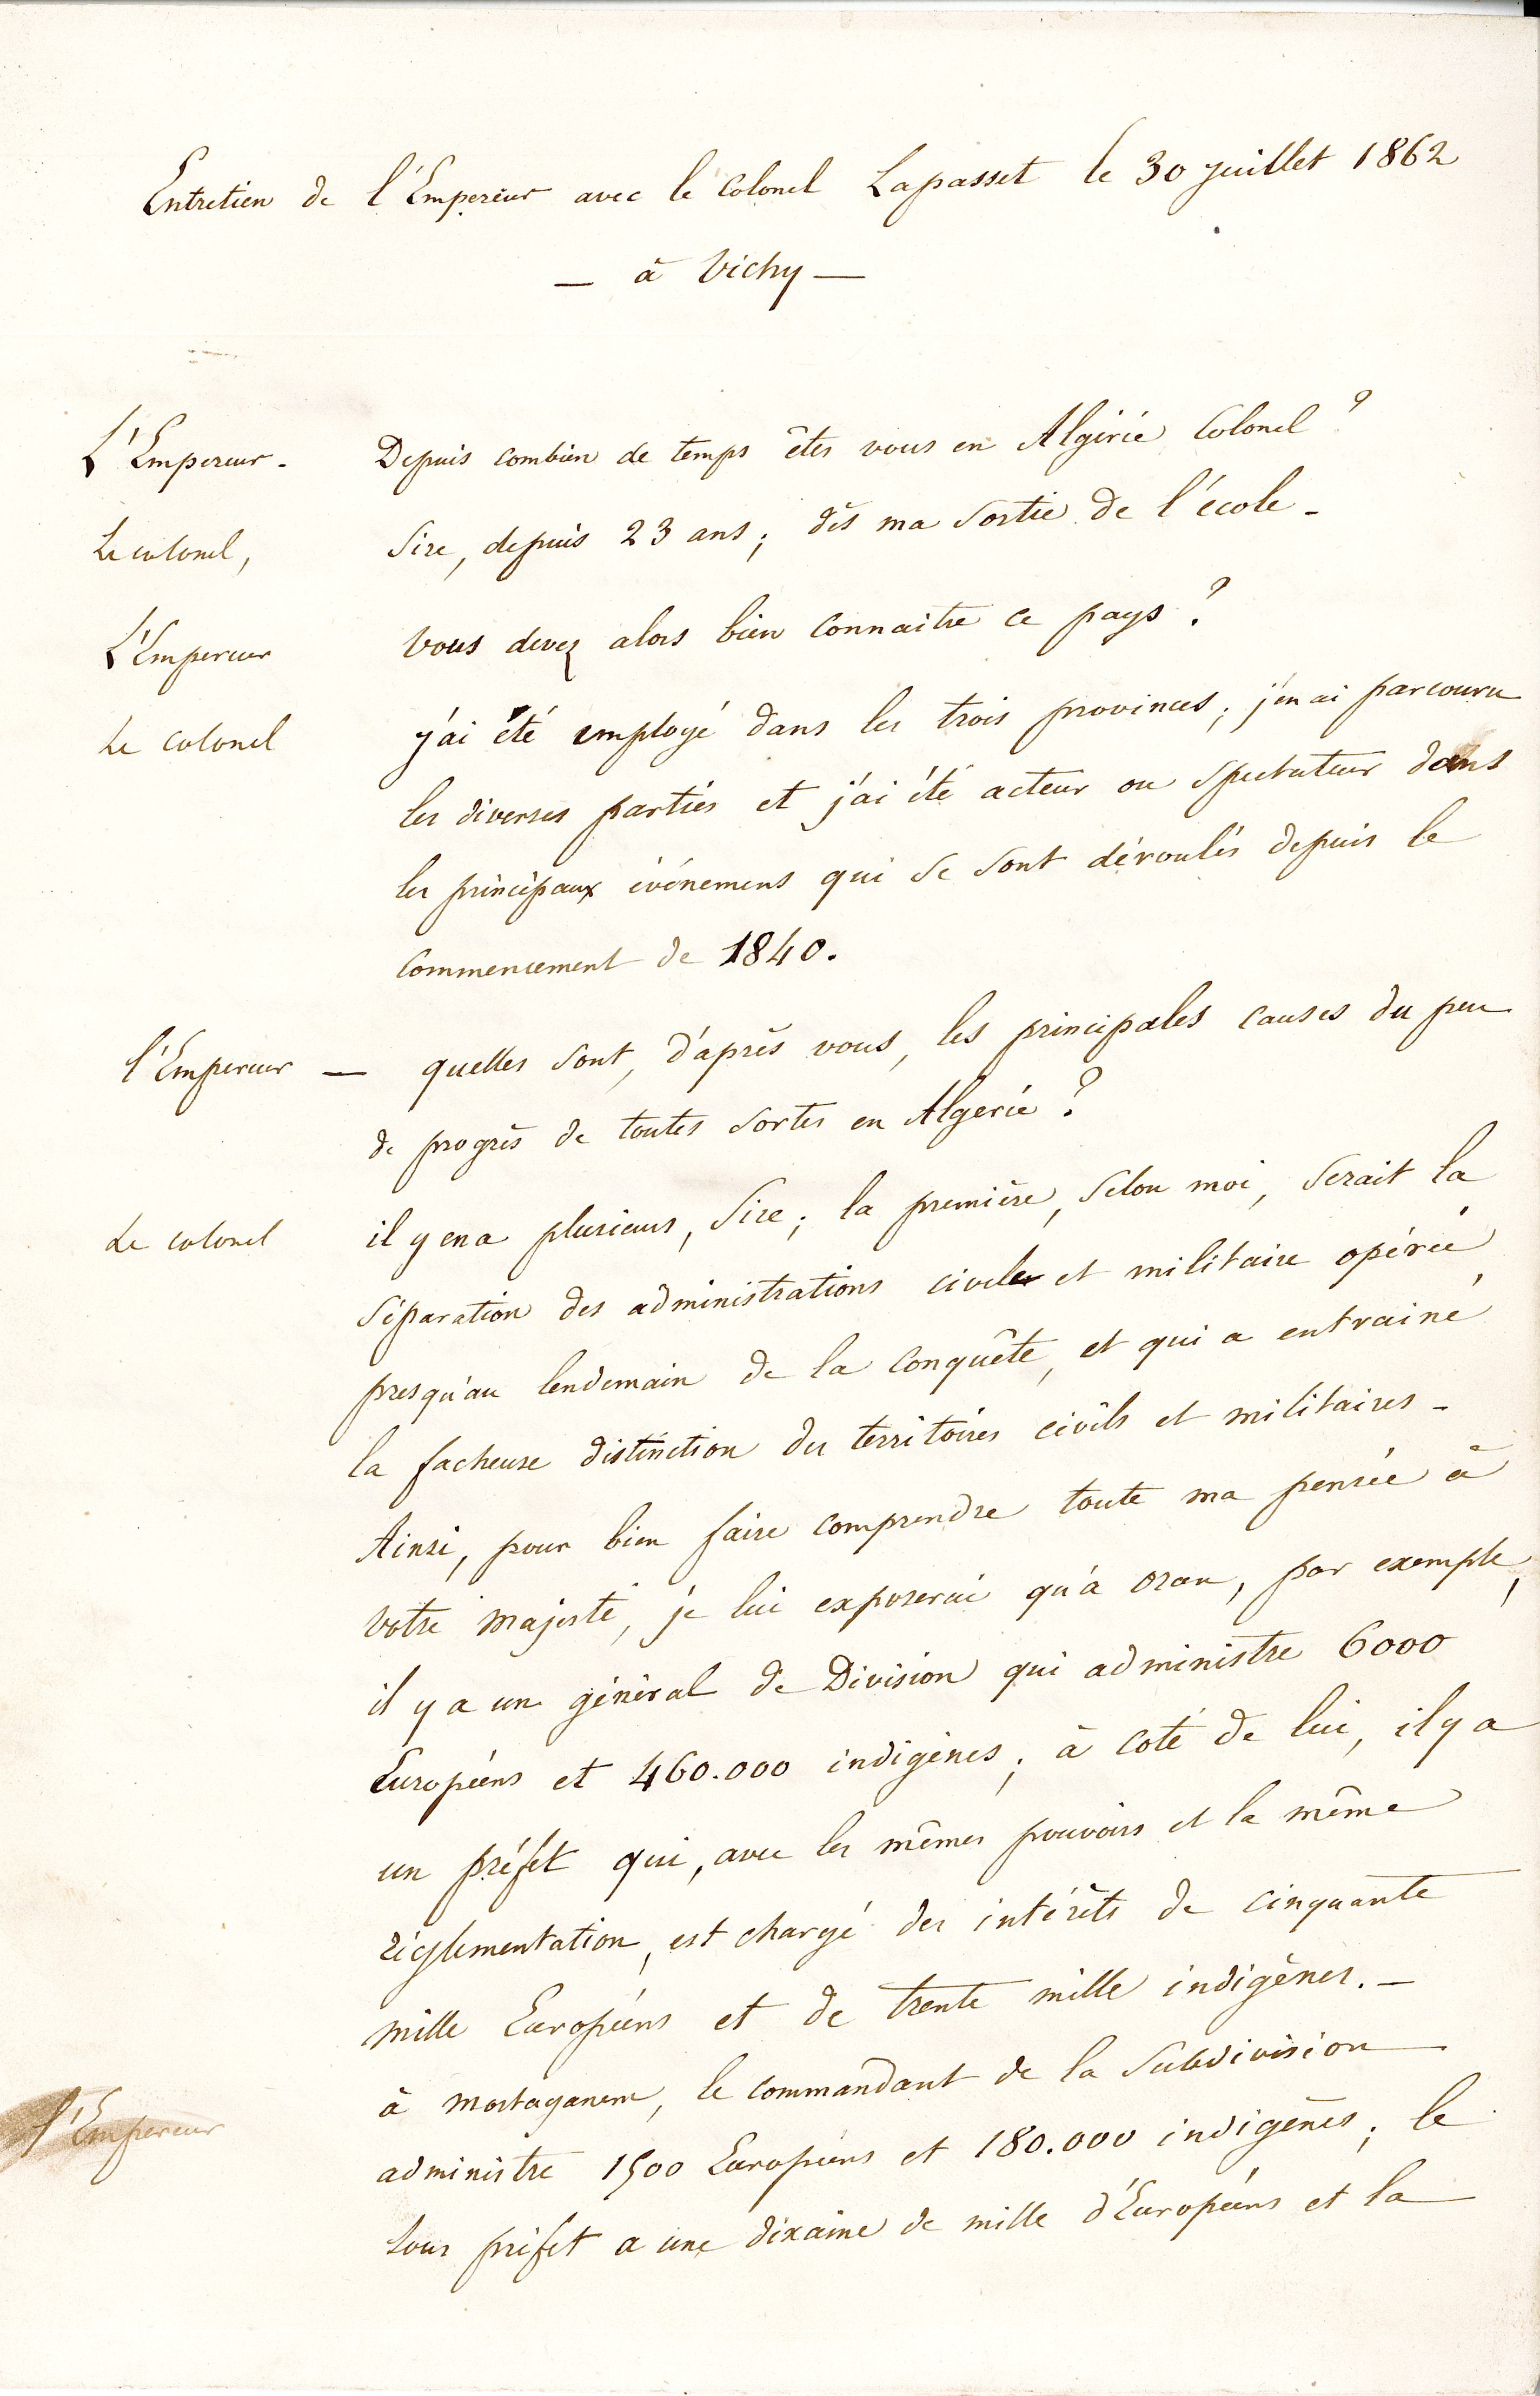 Entretien de l'Empereur avec le Colonel Lapasset le 30 juillet 1862
— à Vichy —
L'Empereur - Depuis combien de temps êtes vous en Algérie Colonel ?
Le colonel, Sire, depuis 23 ans ; dès ma sortie de l'école -
L'Empereur Vous devez alors bien connaitre ce pays ?
Le colonel j'ai été employé dans les trois provinces ; j'en ai parcouru
les diverses parties et j'ai été acteur ou spectateur dans
les principaux événemens qui se sont déroulés depuis le
commencement de 1840.
l'Empereur — quelles sont, d'après vous, les principales causes du peu
de progrès de toutes sortes en Algérie ?
Le colonel il y en a plusieurs, Sire ; la première, selon moi, serait la
séparation des administrations civile et militaire opérée
presqu'au lendemain de la conquête, et qui a entrainé
la facheuse distinction des territoires civils et militaires -
Ainsi, pour bien faire comprendre toute ma pensée à
votre majesté, je lui exposerai qu'à oran, par exemple,
il y a un général de Division qui administre 6000
Européens et 460.000 indigènes ; à coté de lui, il y a
un préfet qui, avec les mêmes pouvoirs et la même
réglementation, est chargé des intérêts de cinquante
mille Européens et de trente mille indigènes. -
à mostaganem, le commandant de la subdivision
l'Empereur
administre 1500 Européens et 180.000 indigènes ; le
sous préfet a une dixaine de mille d'Européens et la